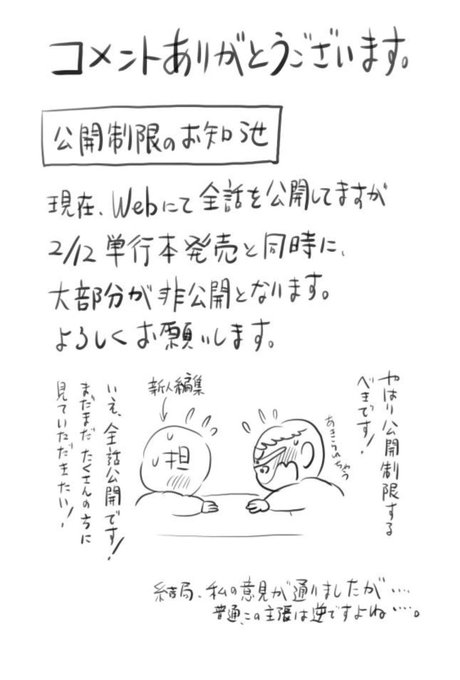 コメントありがとうございます。
公開制限のお知らせ
現在、Webにて全話を公開してますが
2/12単行本発売と同時に、
大部分が非公開となります。
よろしくお願いします。
やはり公開制限する
べきです!
新人編集
担
いえ、全話公開です!
まだまだたくさんの方に
見ていただきたい!
結局、私の意見が通りましたが‥‥
普通、この主張は逆ですよね‥‥。